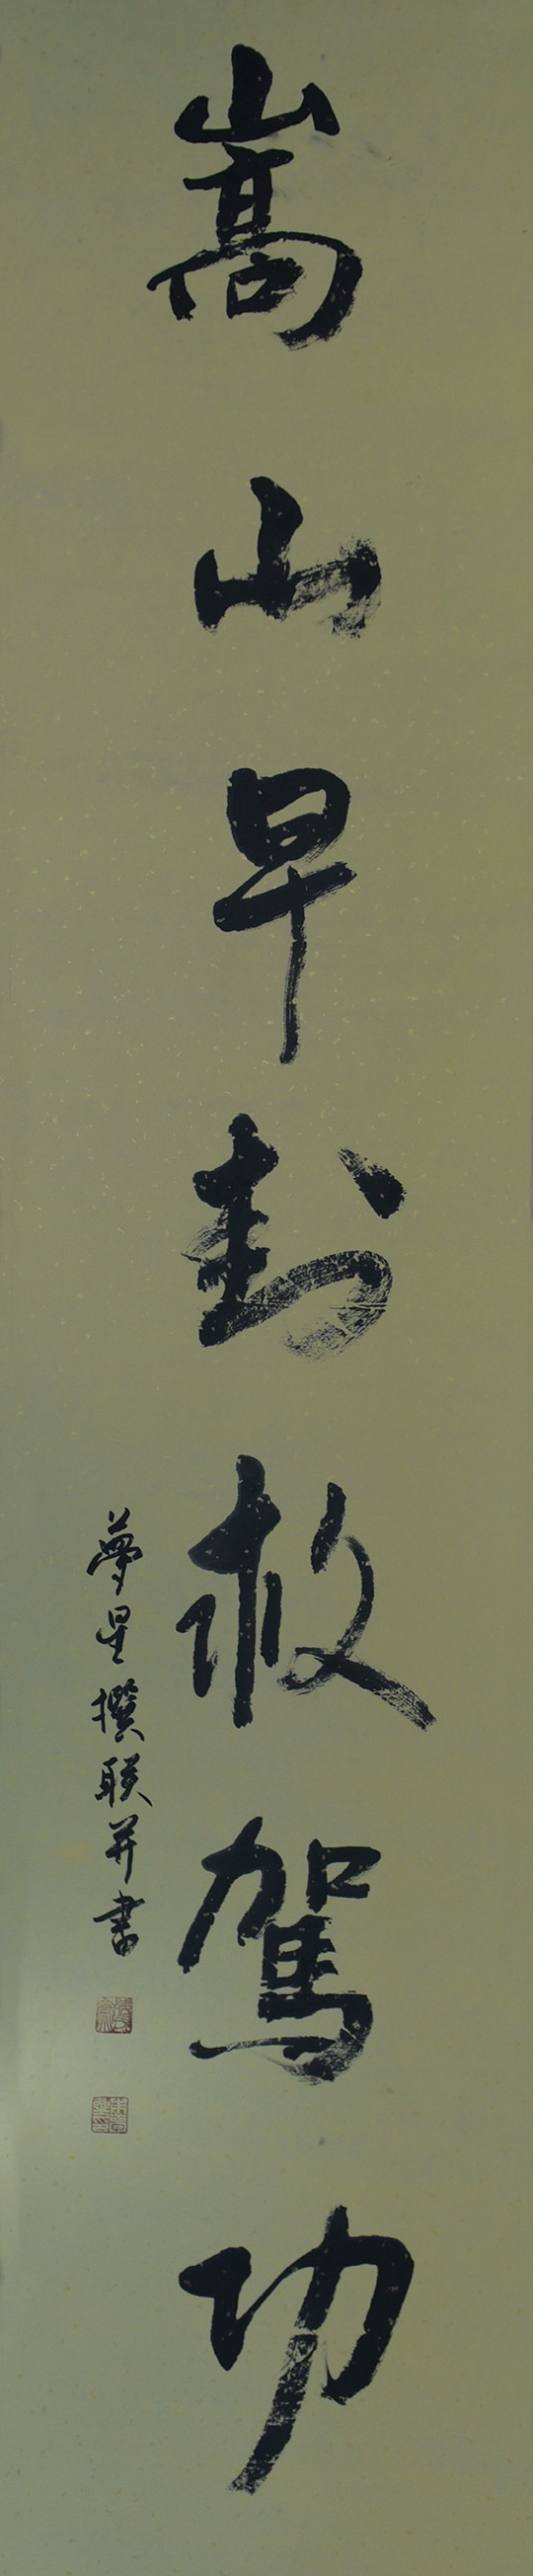 嵩山早封救駕功
夢星撰联并書